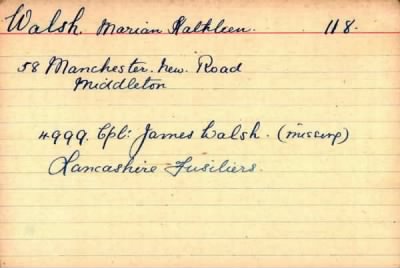 Walsh. Marian Kathleen. 118.
58 Manchester. New. Road
Middleton
4999. Cpl: James Walsh. (missing)
Lancashire Fusiliers.